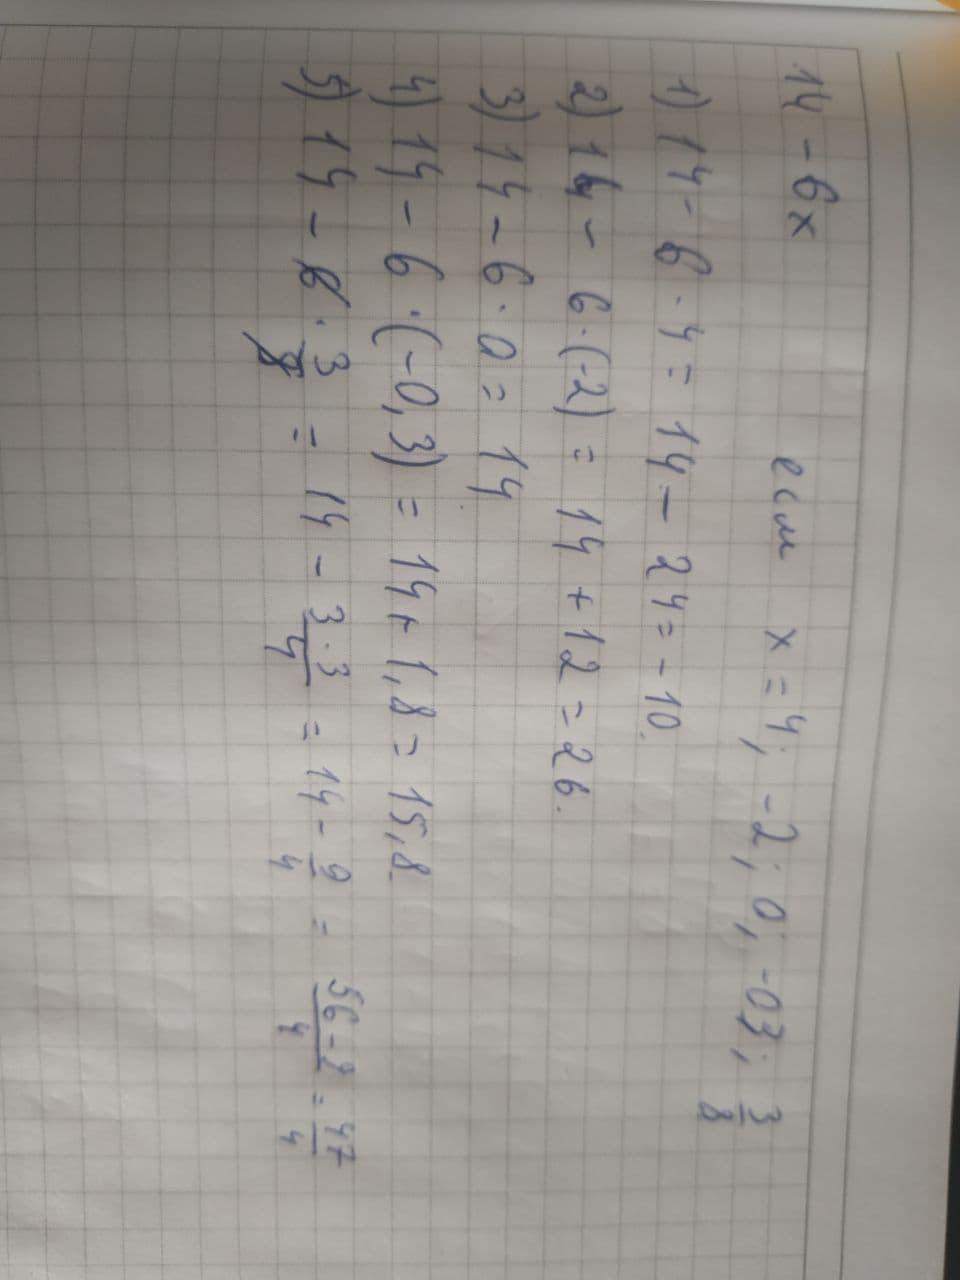 14 - 6x если x = 4; -2; 0; -0,3; 3/8
1) 14 - 6 · 4 = 14 - 24 = -10.
2) 14 - 6 · (-2) = 14 + 12 = 26.
3) 14 - 6 · 0 = 14.
4) 14 - 6 · (-0,3) = 14 + 1,8 = 15,8.
5) 14 - 6 · 3/8 = 14 - 3·3/4 = 14 - 9/4 = 56-9/4 = 47/4